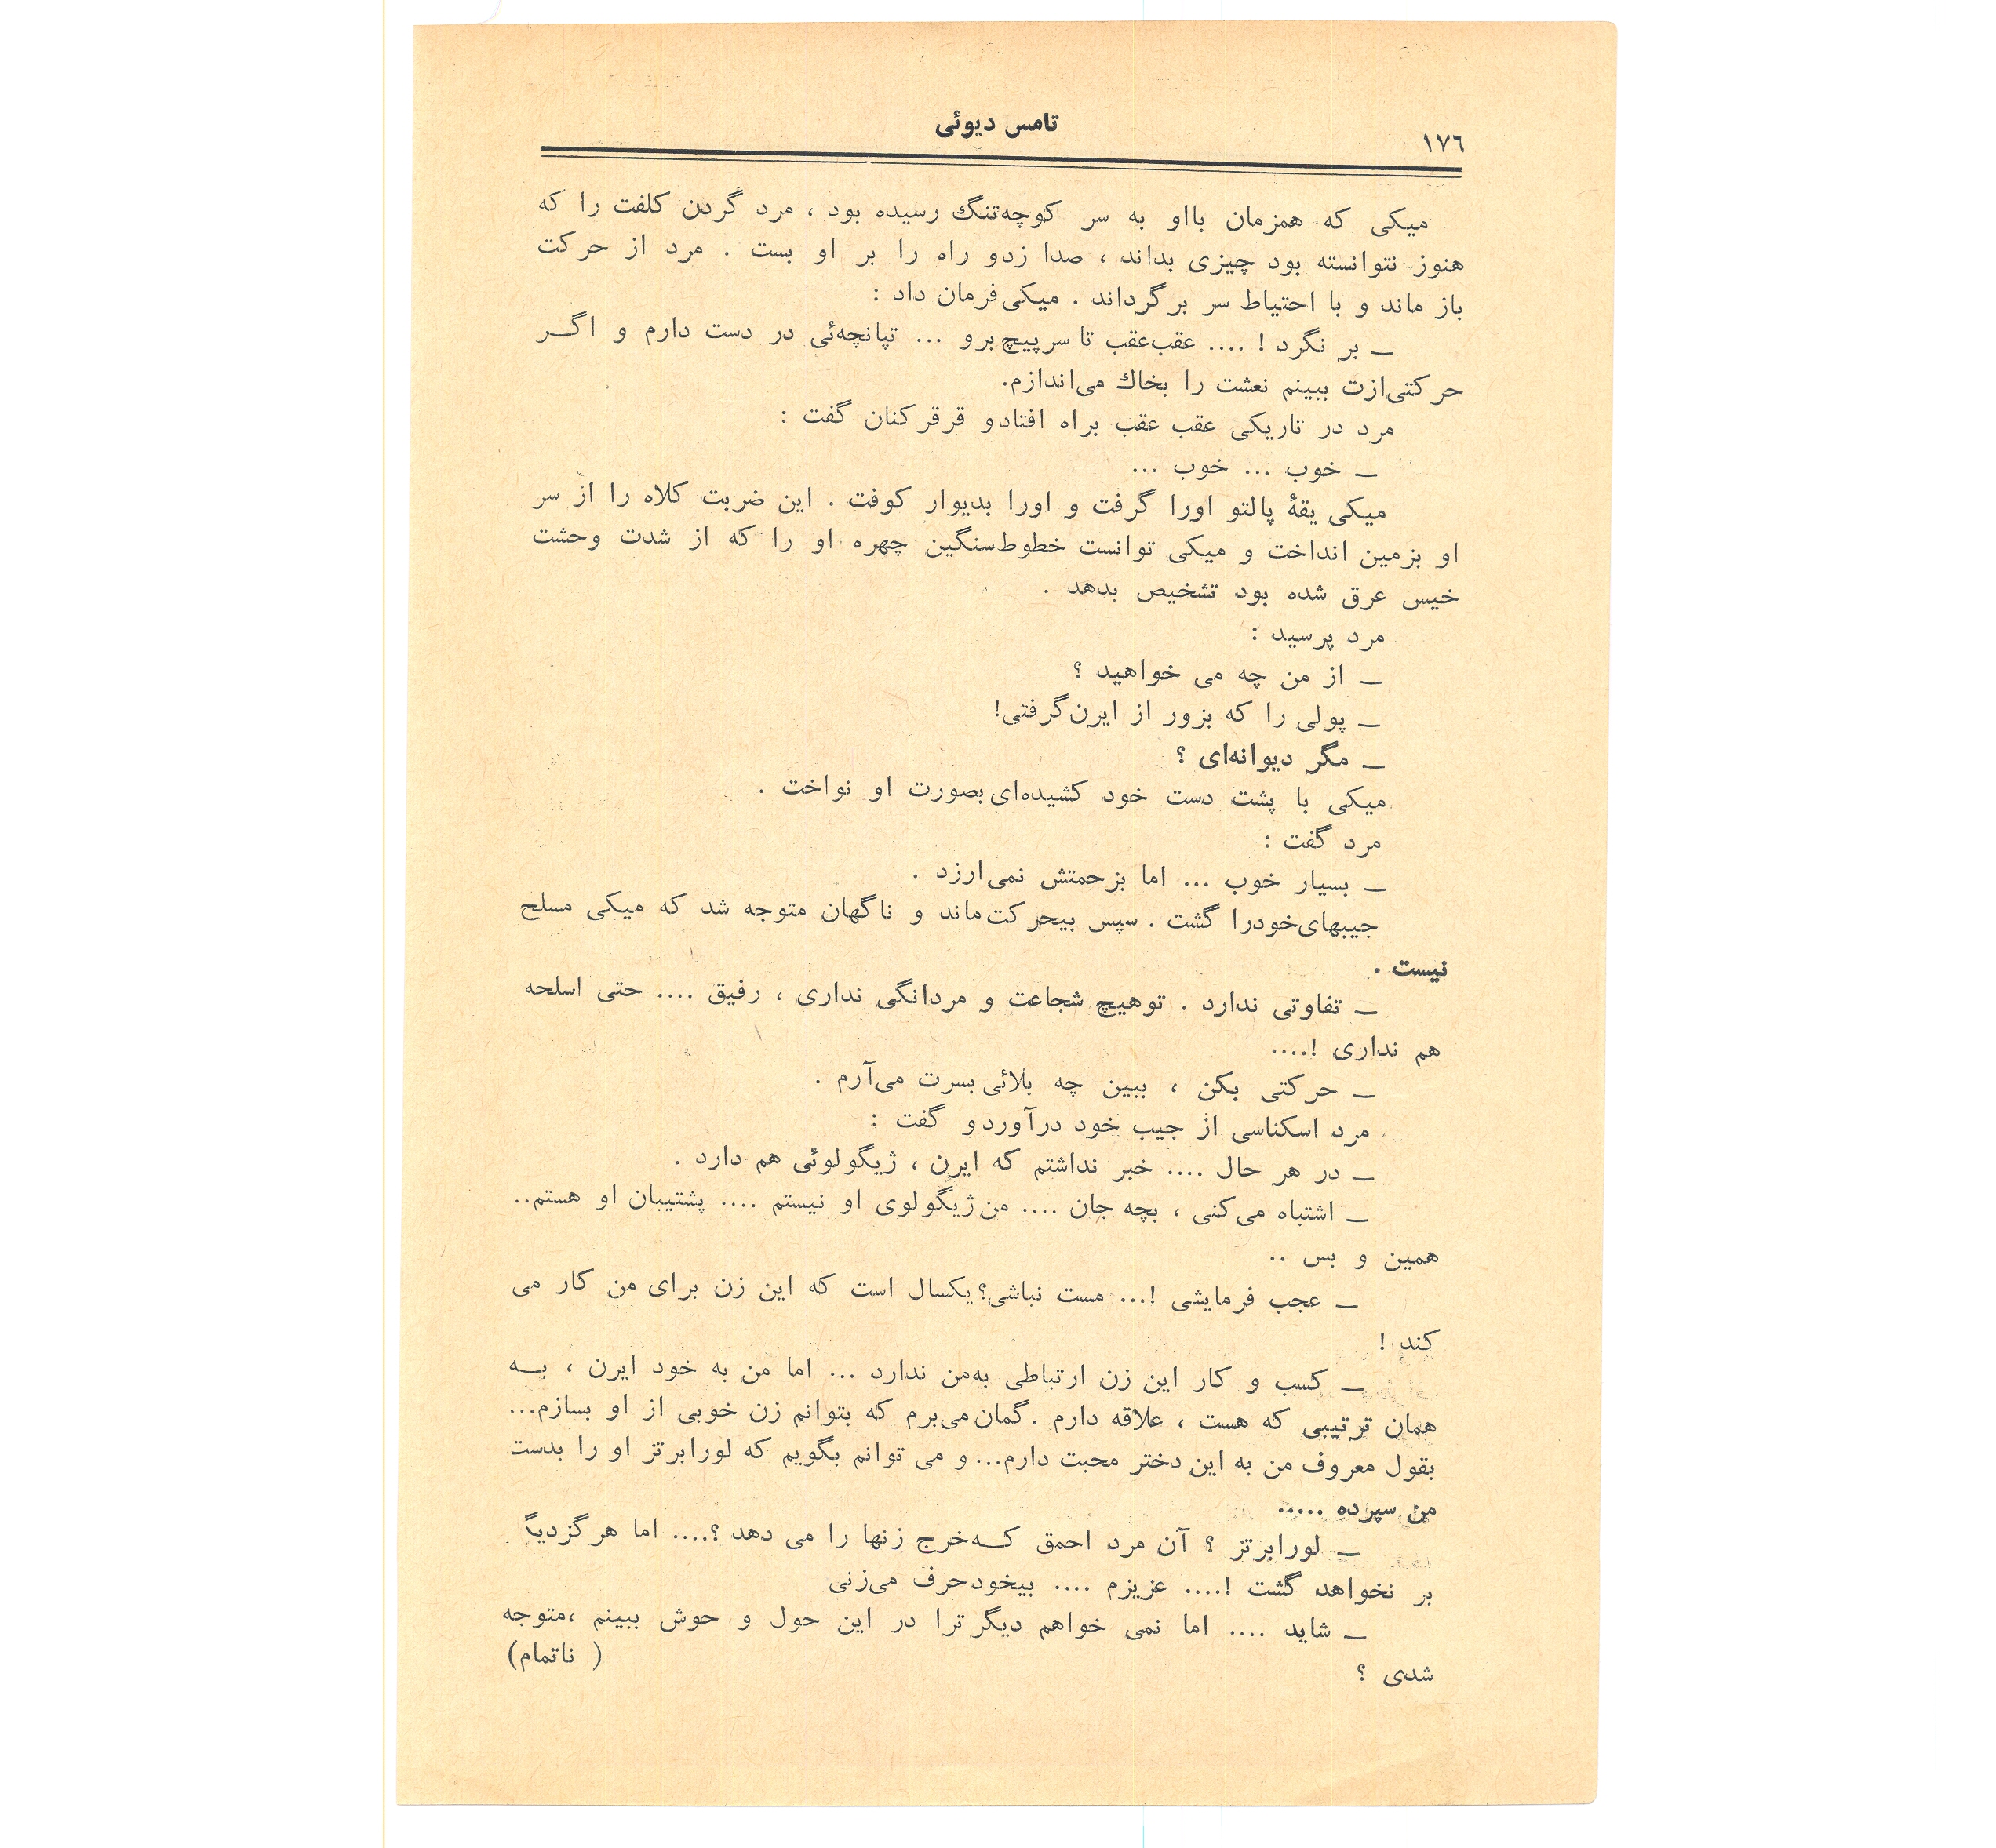 تامس دیوئی
۱۷٦
میکی که همزمان بااو به سر کوچه‌تنگ رسیده بود ، مرد گردن کلفت را که
هنوز نتوانسته بود چیزی بداند ، صدا زدو راه را بر او بست . مرد از حرکت
باز ماند و با احتیاط سر برگرداند . میکی‌فرمان داد :
ـ بر نگرد ! .... عقب‌عقب تا سرپیچ‌برو ... تپانچه‌ئی در دست دارم و اگـر
حرکتی‌ازت ببینم نعشت را بخاك می‌اندازم.
مرد در تاریکی عقب عقب براه افتادو قرقرکنان گفت :
ـ خوب ... خوب ...
میکی یقهٔ پالتو اورا گرفت و اورا بدیوار کوفت . این ضربت کلاه را از سر
او بزمین انداخت و میکی توانست خطوط‌سنگین چهره او را که از شدت وحشت
خیس عرق شده بود تشخیص بدهد .
مرد پرسید :
ـ از من چه می خواهید ؟
ـ پولی را که بزور از ایرن‌گرفتی!
ـ مگر دیوانه‌ای ؟
میکی با پشت دست خود کشیده‌ای‌بصورت او نواخت .
مرد گفت :
ـ بسیار خوب ... اما بزحمتش نمی‌ارزد .
جیبهای‌خودرا گشت . سپس بیحرکت‌ماند و ناگهان متوجه شد که میکی مسلح
نیست .
ـ تفاوتی ندارد . توهیچ شجاعت و مردانگی نداری ، رفیق .... حتی اسلحه
هم نداری !....
ـ حرکتی بکن ، ببین چه بلائی‌بسرت می‌آرم .
مرد اسکناسی از جیب خود درآوردو گفت :
ـ در هر حال .... خبر نداشتم که ایرن ، ژیگولوئی هم دارد .
ـ اشتباه می‌کنی ، بچه جان .... من‌ژیگولوی او نیستم .... پشتیبان او هستم..
همین و بس ..
ـ عجب فرمایشی !... مست نباشی؟یکسال است که این زن برای من کار می
کند !
ـ کسب و کار این زن ارتباطی به‌من ندارد ... اما من به خود ایرن ، بـه
همان ترتیبی که هست ، علاقه دارم .گمان‌می‌برم که بتوانم زن خوبی از او بسازم...
بقول معروف من به این دختر محبت دارم... و می توانم بگویم که لورابرتز او را بدست
من سپرده .....
ـ لورابرتز ؟ آن مرد احمق کـه‌خرج زنها را می دهد ؟.... اما هرگزدیگ
بر نخواهد گشت !.... عزیزم .... بیخودحرف می‌زنی
ـ شاید .... اما نمی خواهم دیگر ترا در این حول و حوش ببینم ،متوجه
شدی ؟
( ناتمام)